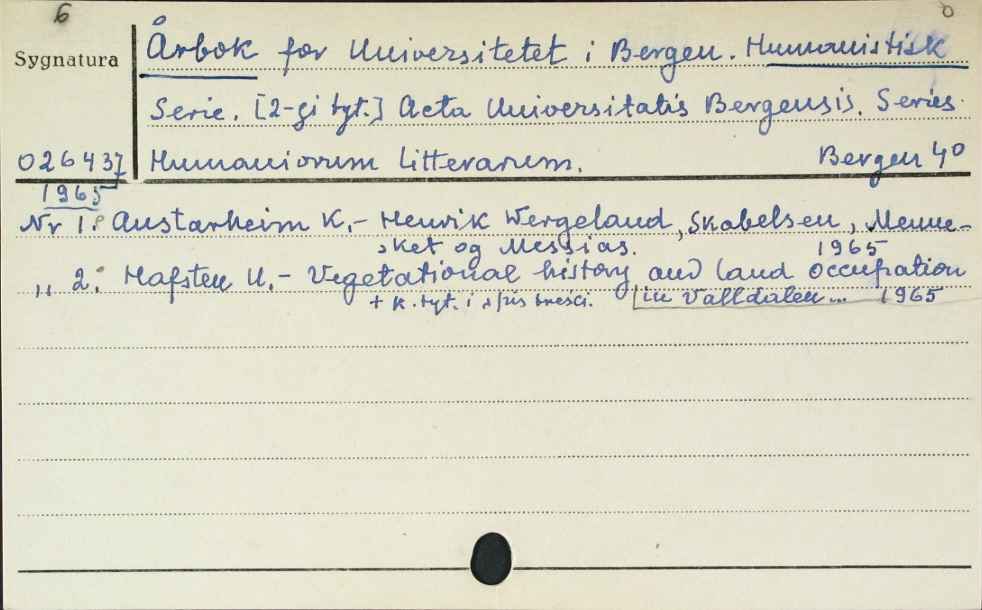 6
Sygnatura
Årbok for Universitetet i Bergen. Humanistisk
Serie. [2-gi tyt.] Acta Universitatis Bergensis. Series
026437 Humaniorum Litterarum. Bergen 4⁰
1965
Nr 1: Austarheim K.- Henrik Wergeland, Skabelsen, Menne-
sket og Messias. 1965
„ 2: Hafsten U.- Vegetational history and land occupation
+ k. tyt. i spis treści. [in Valldalen... 1965